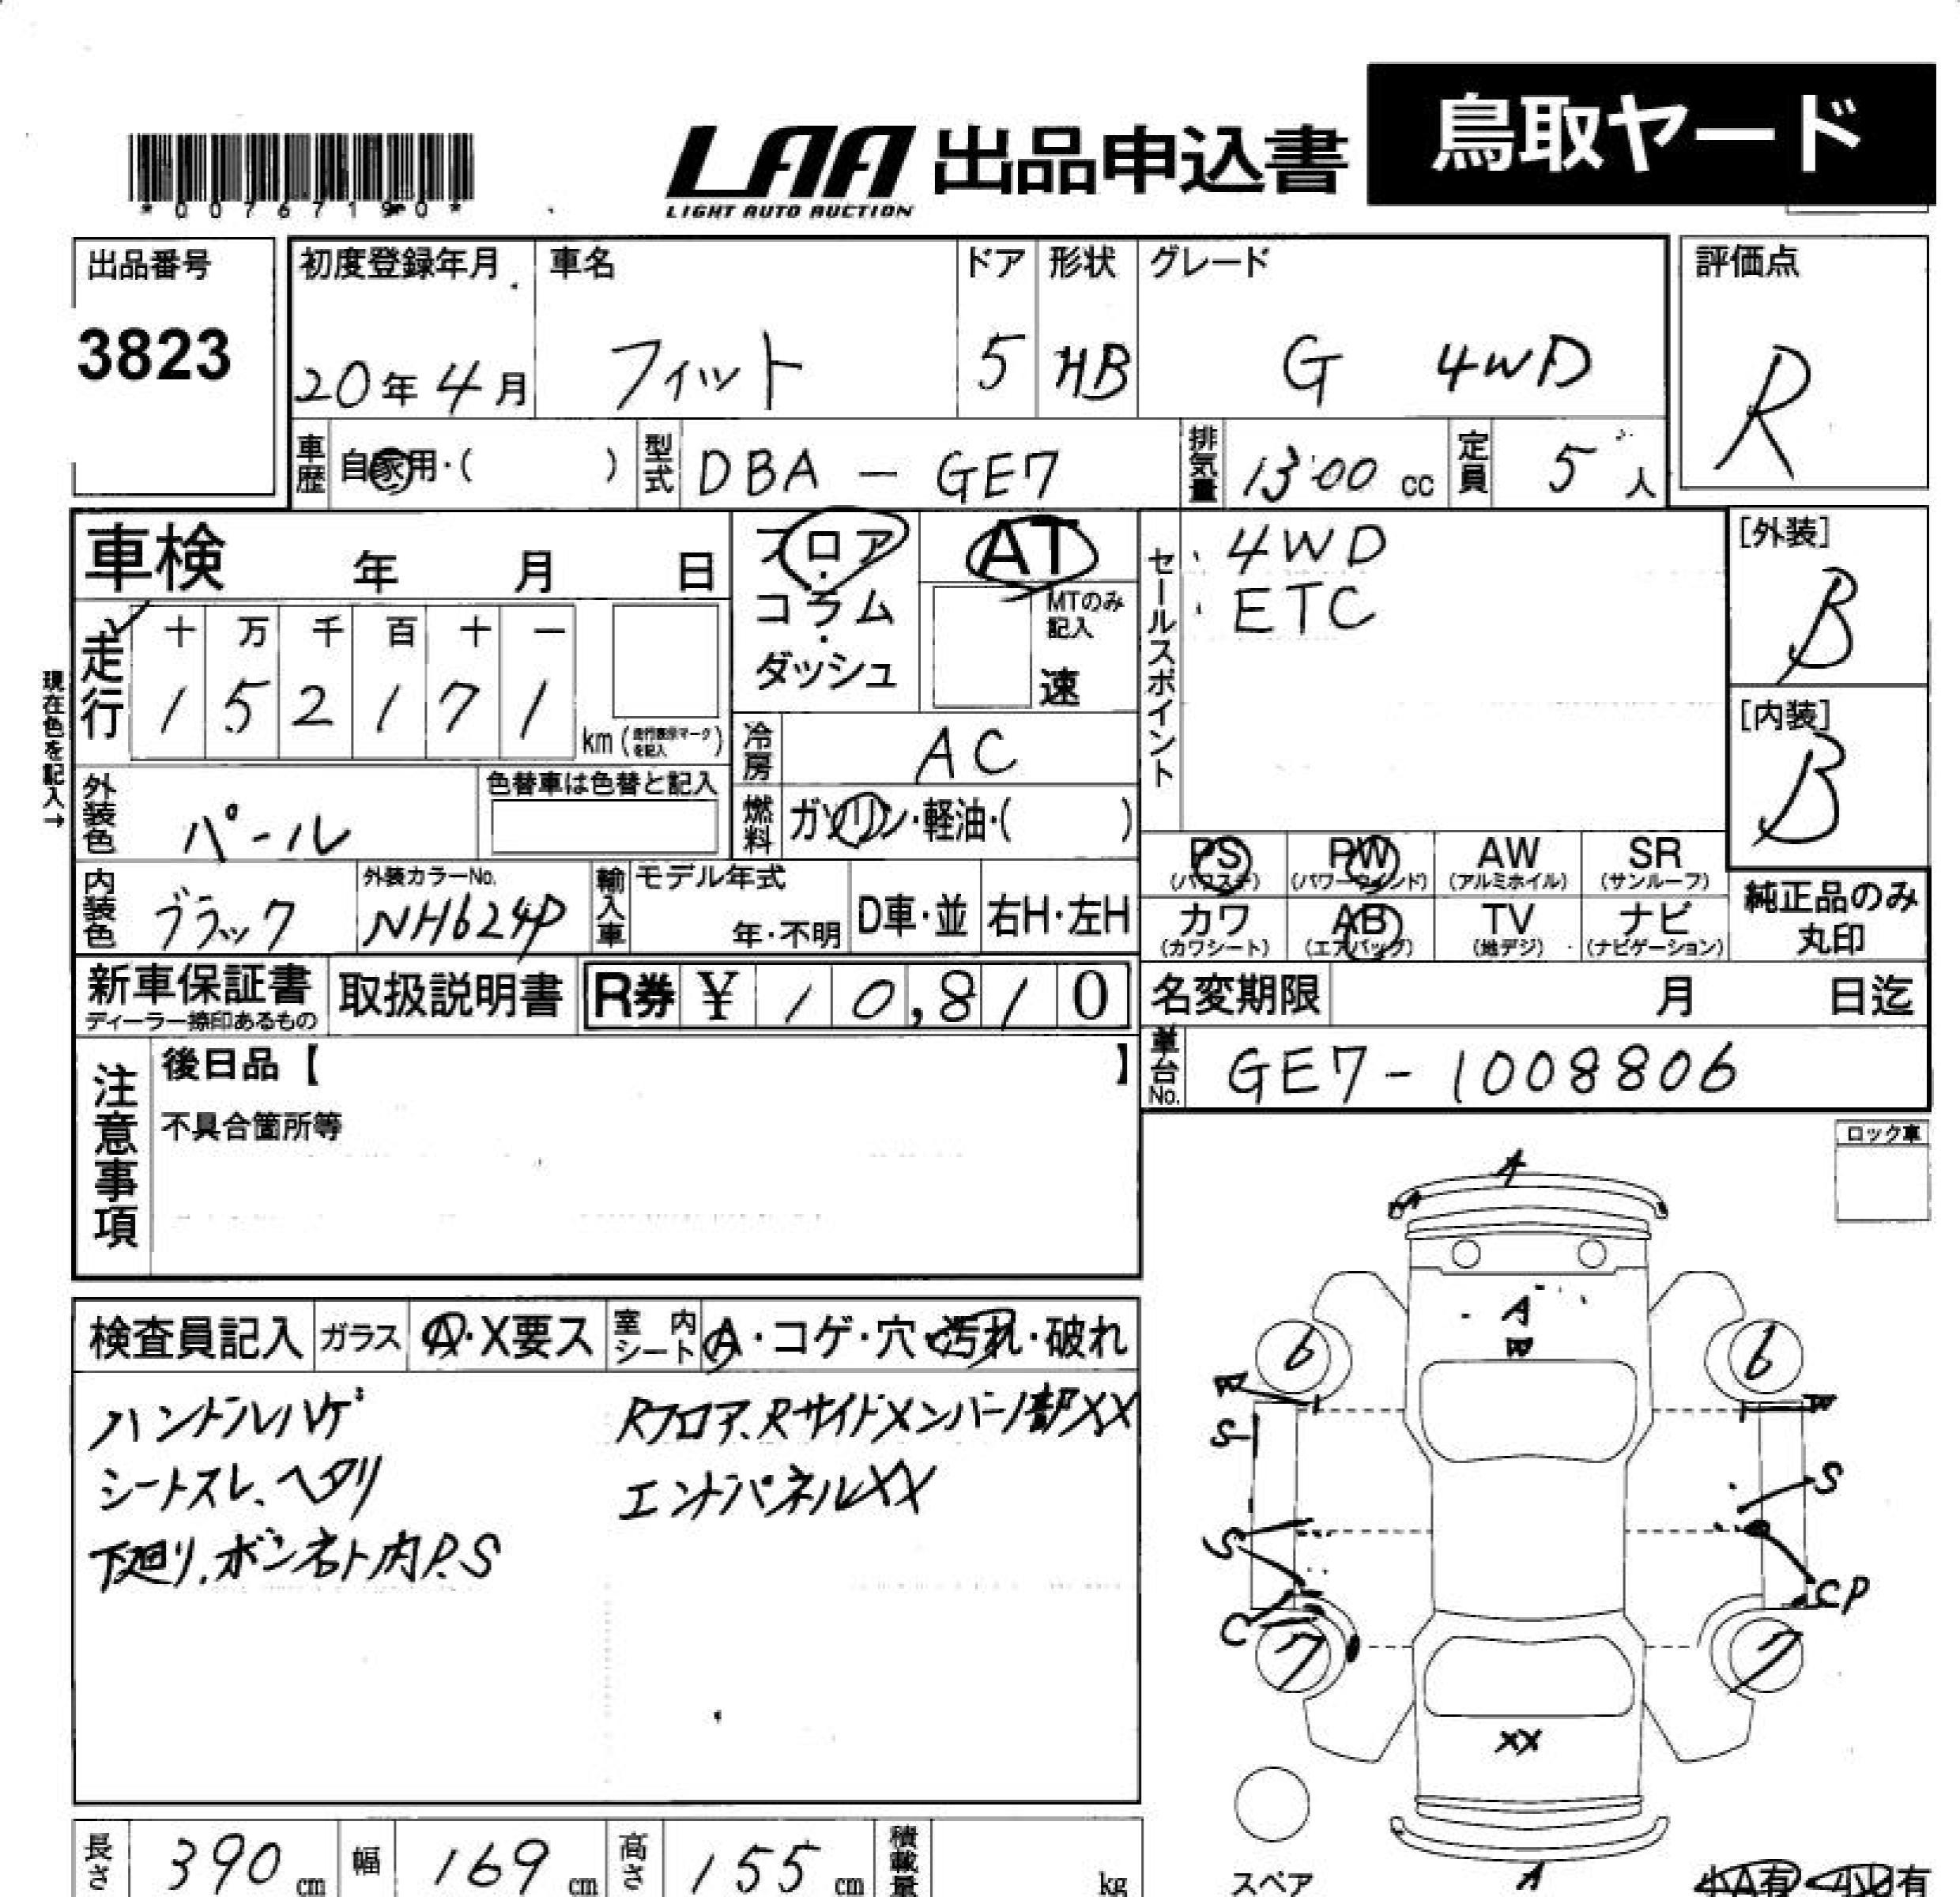 *0076719*0*
LAA 出品申込書 鳥取ヤード
LIGHT AUTO AUCTION
出品番号
3823
初度登録年月 車名 ドア 形状 グレード
20年4月 フィット 5 HB G 4WD
評価点
R
車歴 自家用・( ) 型式 DBA - GE7 排気量 1300 cc 定員 5 人
車検 年 月 日
走行 十 万 千 百 十 一
1 5 2 1 7 1
km (走行表示マークを記入)
現在色を記入→
フロア・コラム・ダッシュ
AT
MTのみ記入
速
冷房 AC
燃料 ガソリン・軽油・( )
セールスポイント
4WD
ETC
[外装]
B
[内装]
B
外装色 パール
色替車は色替と記入
内装色 ブラック
外装カラーNo.
NH624P
輸入車 モデル年式
年・不明 D車・並 右H・左H
PS PW AW SR
(パワステ) (パワーウインド) (アルミホイル) (サンルーフ)
カワ AB TV ナビ
(カワシート) (エアバッグ) (地デジ) (ナビゲーション)
純正品のみ
丸印
新車保証書
ディーラー捺印あるもの
取扱説明書
R券 ¥ 10,810
名変期限 月 日迄
車台No. GE7-1008806
注意事項
後日品【 】
不具合箇所等
ロック車
検査員記入 ガラス A・X要ス 室内シート A・コゲ・穴・汚れ・破れ
ハンドルハゲ
シートスレ、ヘタリ
下廻り、ボン右ト内P.S
Rフロア、Rサイドメンバー1部XX
エンドパネルXX
A
A
B
6 6
S
S
S
C
CP
7 7
XX
A
スペア
長さ 390 cm 幅 169 cm 高さ 155 cm 積載量 kg
小A有 小U有